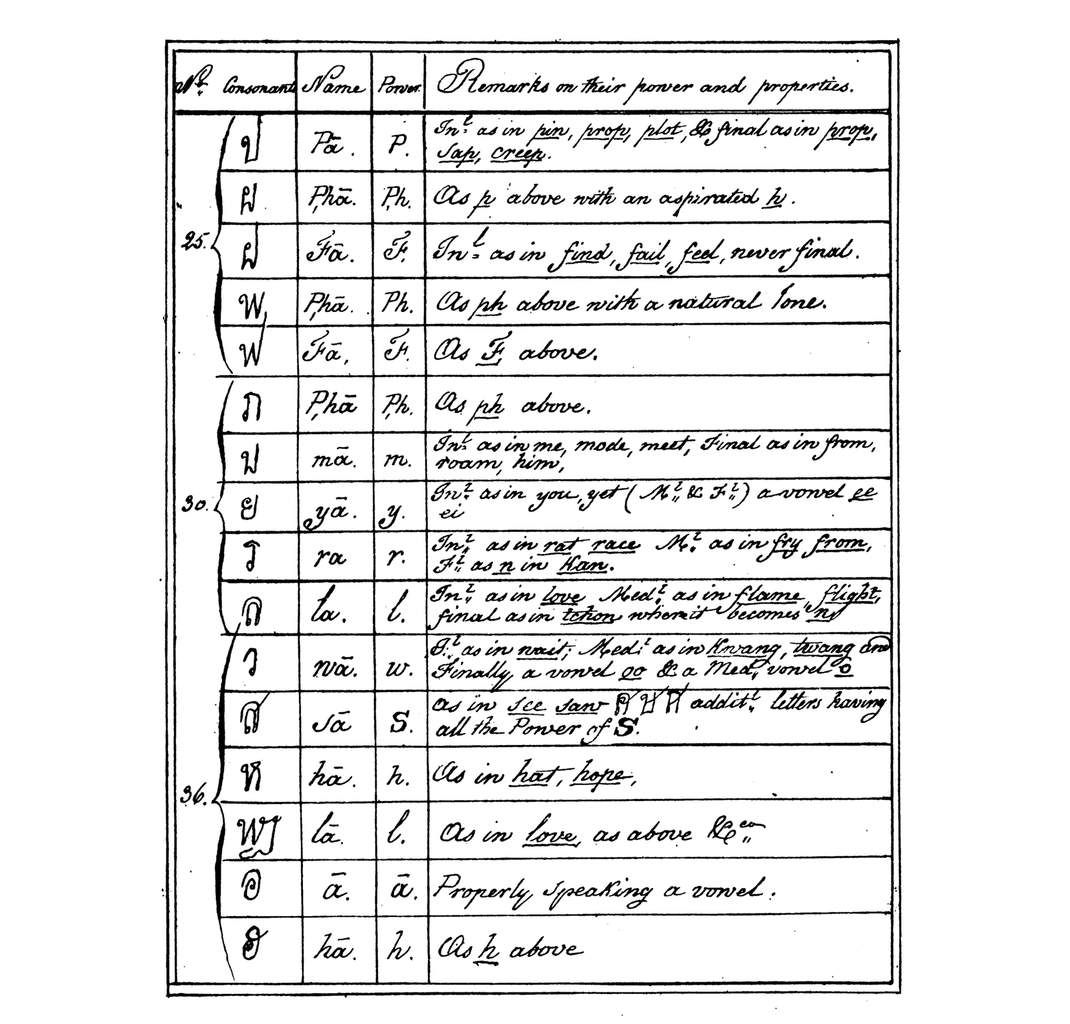 No. Consonants Name Power. Remarks on their power and properties.
25.
ป Pā. P. Inl. as in pin, prop, plot, & final as in prop,
sap, creep.
ผ P,hā. P,h. As p above with an aspirated h.
ฝ Fā. F. Inl. as in find, fail, feel, never final.
พ P,hā. Ph. As ph above with a natural Tone.
ฟ Fā, F. As F above.
30.
ภ P,hā P,h. As ph above.
ม mā. m. Inl. as in me, mode, meet, Final as in from,
roam, him,
ย yā. y. Inl. as in you, yet (Ml. & Fl.) a vowel ee
ei
ร ra r. Inl. as in rat race Ml. as in fry from,
Fl. as n in Kan.
ล la. l. Inl. as in love Medl. as in flame, flight,
final as in tchon where it becomes n
36.
ว wā. w. Il. as in wait; Medl. as in Kwang, twang and
Finally a vowel oo & a Med. vowel o
ส sā S. as in see saw ศ ษ addit.l letters having
all the Power of S.
ห hā. h. As in hat, hope,
ฬ lā. l. As in love, as above &ca
อ ā. ā. Properly speaking a vowel.
ฮ hā. h. As h above